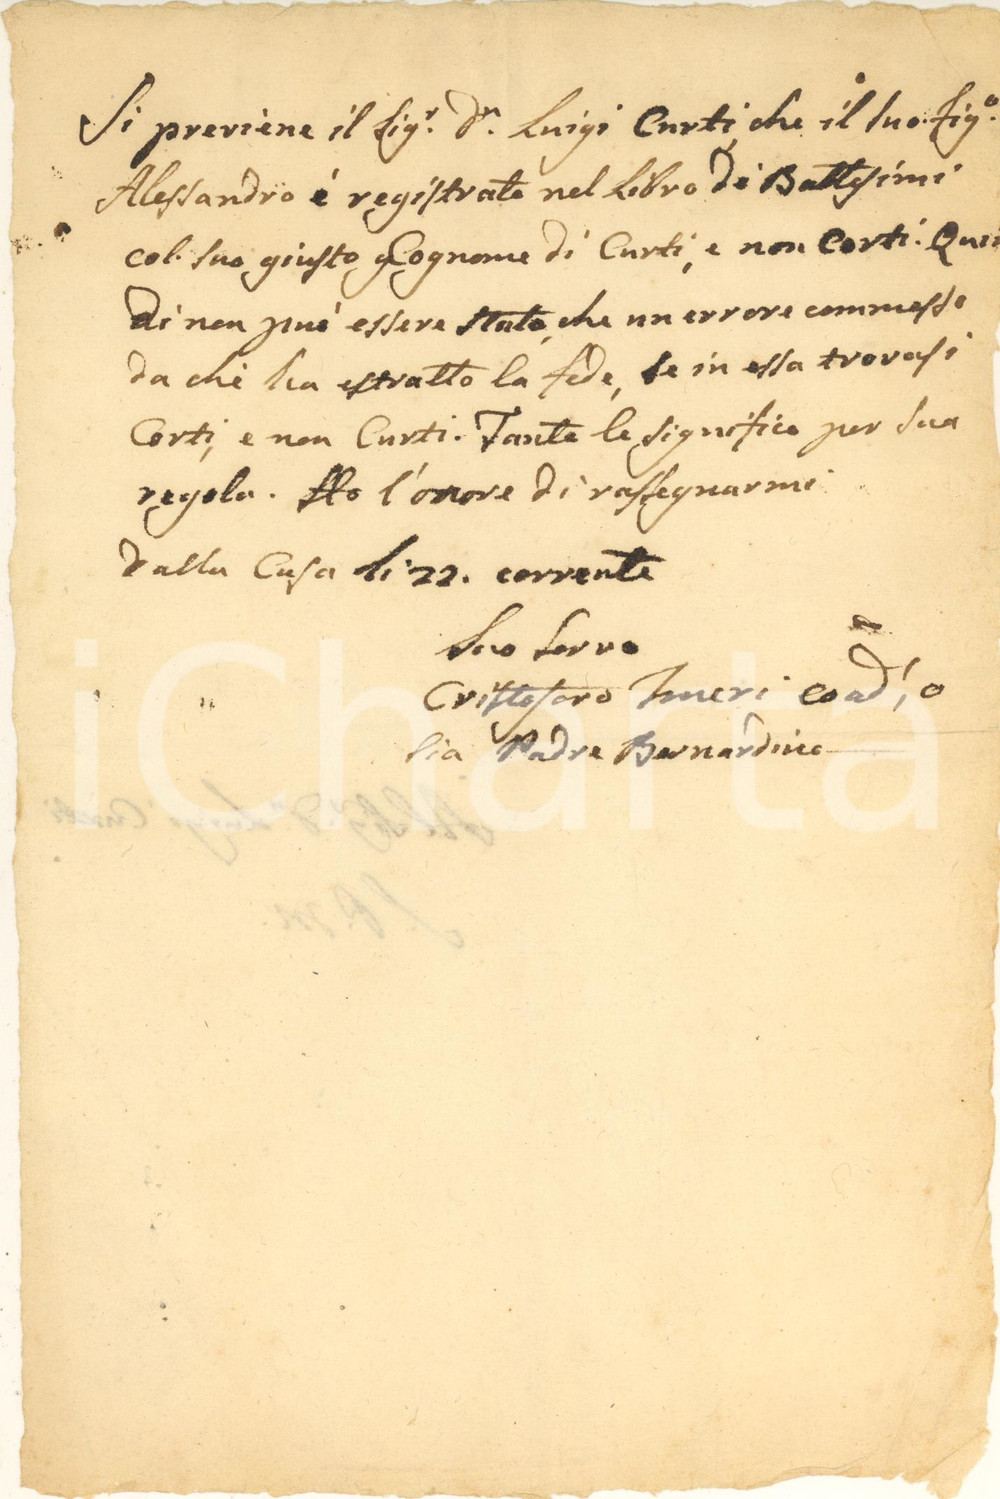 Si previene il Sig.r D.n Luigi Curti, che il suo fig.o
Alessandro é registrato nel Libro dé Battesimi
col suo giusto Cognome di Curti, e non Corti. Quin
di non puó essere stato, che un errore commesso
da chi ha estratto la fede, se in essa trovasi
Corti, e non Curti. Tanto le significo per sua
regola. Ho l'onore di rassegnarmi
Dalla Casa li 22. corrente
Suo Servo
Cristoforo Imeri coad.', o
sia Padre Bernardino
Al Sig.r D.n Luigi Curti
S. P. M.
iCharta